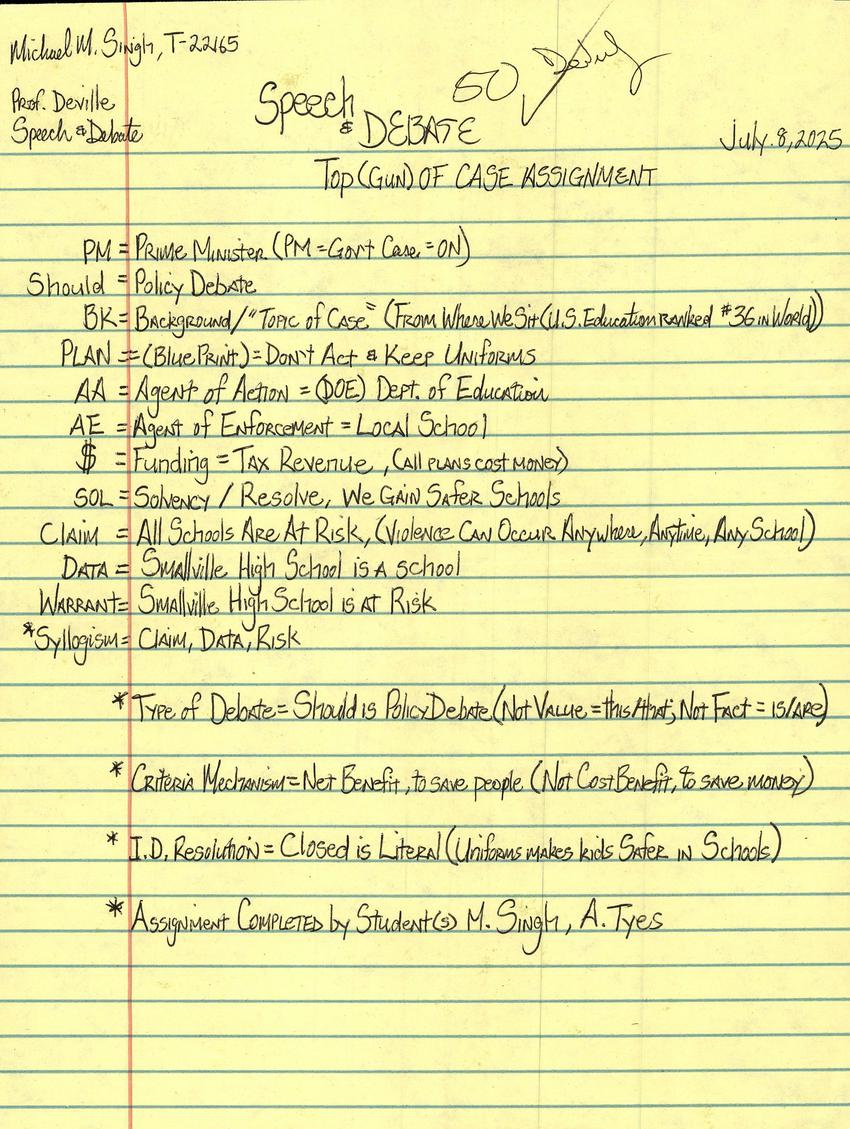 Michael M. Singh, T-22165
50
Prof. Deville
Speech & Debate
Speech
& DEBATE
July. 8, 2025
Top (Gun) OF CASE ASSIGNMENT
PM = Prime Minister (PM = Gov't Case = ON)
Should = Policy Debate
BK = Background / "Topic of Case" (From Where We Sit (U.S. Education ranked #36 in World))
PLAN = (Blue Print) = Don't Act & Keep Uniforms
AA = Agent of Action = (DOE) Dept. of Education
AE = Agent of Enforcement = Local School
$ = Funding = Tax Revenue, (all plans cost money)
SOL = Solvency / Resolve, We Gain Safer Schools
Claim = All Schools Are At Risk, (Violence Can Occur Anywhere, Anytime, Any School)
Data = Smallville High School is a school
Warrant = Smallville High School is at Risk
*Syllogism = Claim, Data, Risk
* Type of Debate = Should is Policy Debate (Not Value = this/that, Not Fact = is/are)
* Criteria Mechanism = Net Benefit, to save people (Not Cost Benefit, to save money)
* I.D. Resolution = Closed is Literal (Uniforms makes kids Safer in Schools)
* Assignment Completed by Student(s) M. Singh, A. Tyes